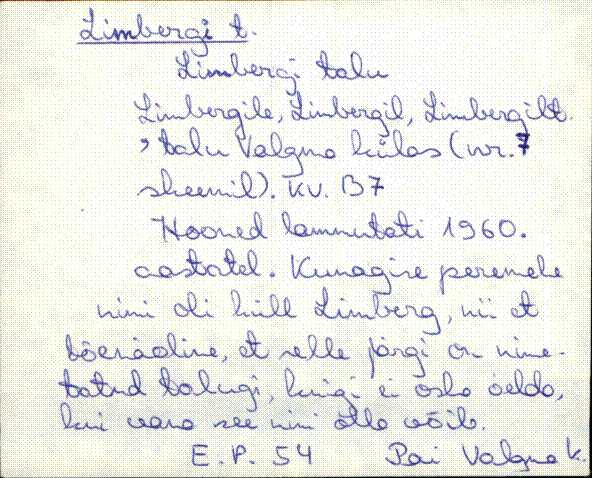 Limbergi t.
Limbergi talu
Limbergile, Limbergil, Limbergilt.
, talu Valgma külas (nr. 7
skeemil). Kv. B7
Hooned lammutati 1960.
aastatel. Kunagise peremehe
nimi oli küll Limberg, nii et
tõenäoline, et selle järgi on nime-
tatud talugi, kuigi ei oska öelda,
kui vana see nimi olla võib.
E.P. 54 Pai Valgma k.